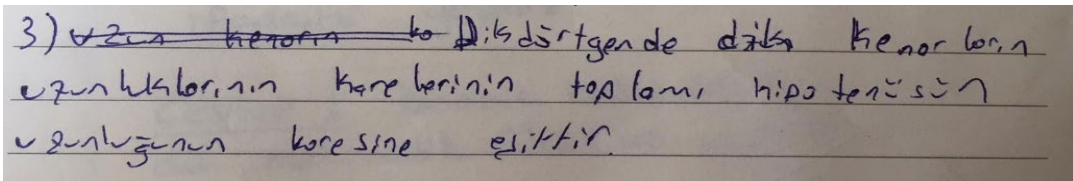 3) uzun kenarın ka Dikdörtgende dik kenarların
uzunluklarının karelerinin toplamı hipotenüsün
uzunluğunun karesine eşittir.